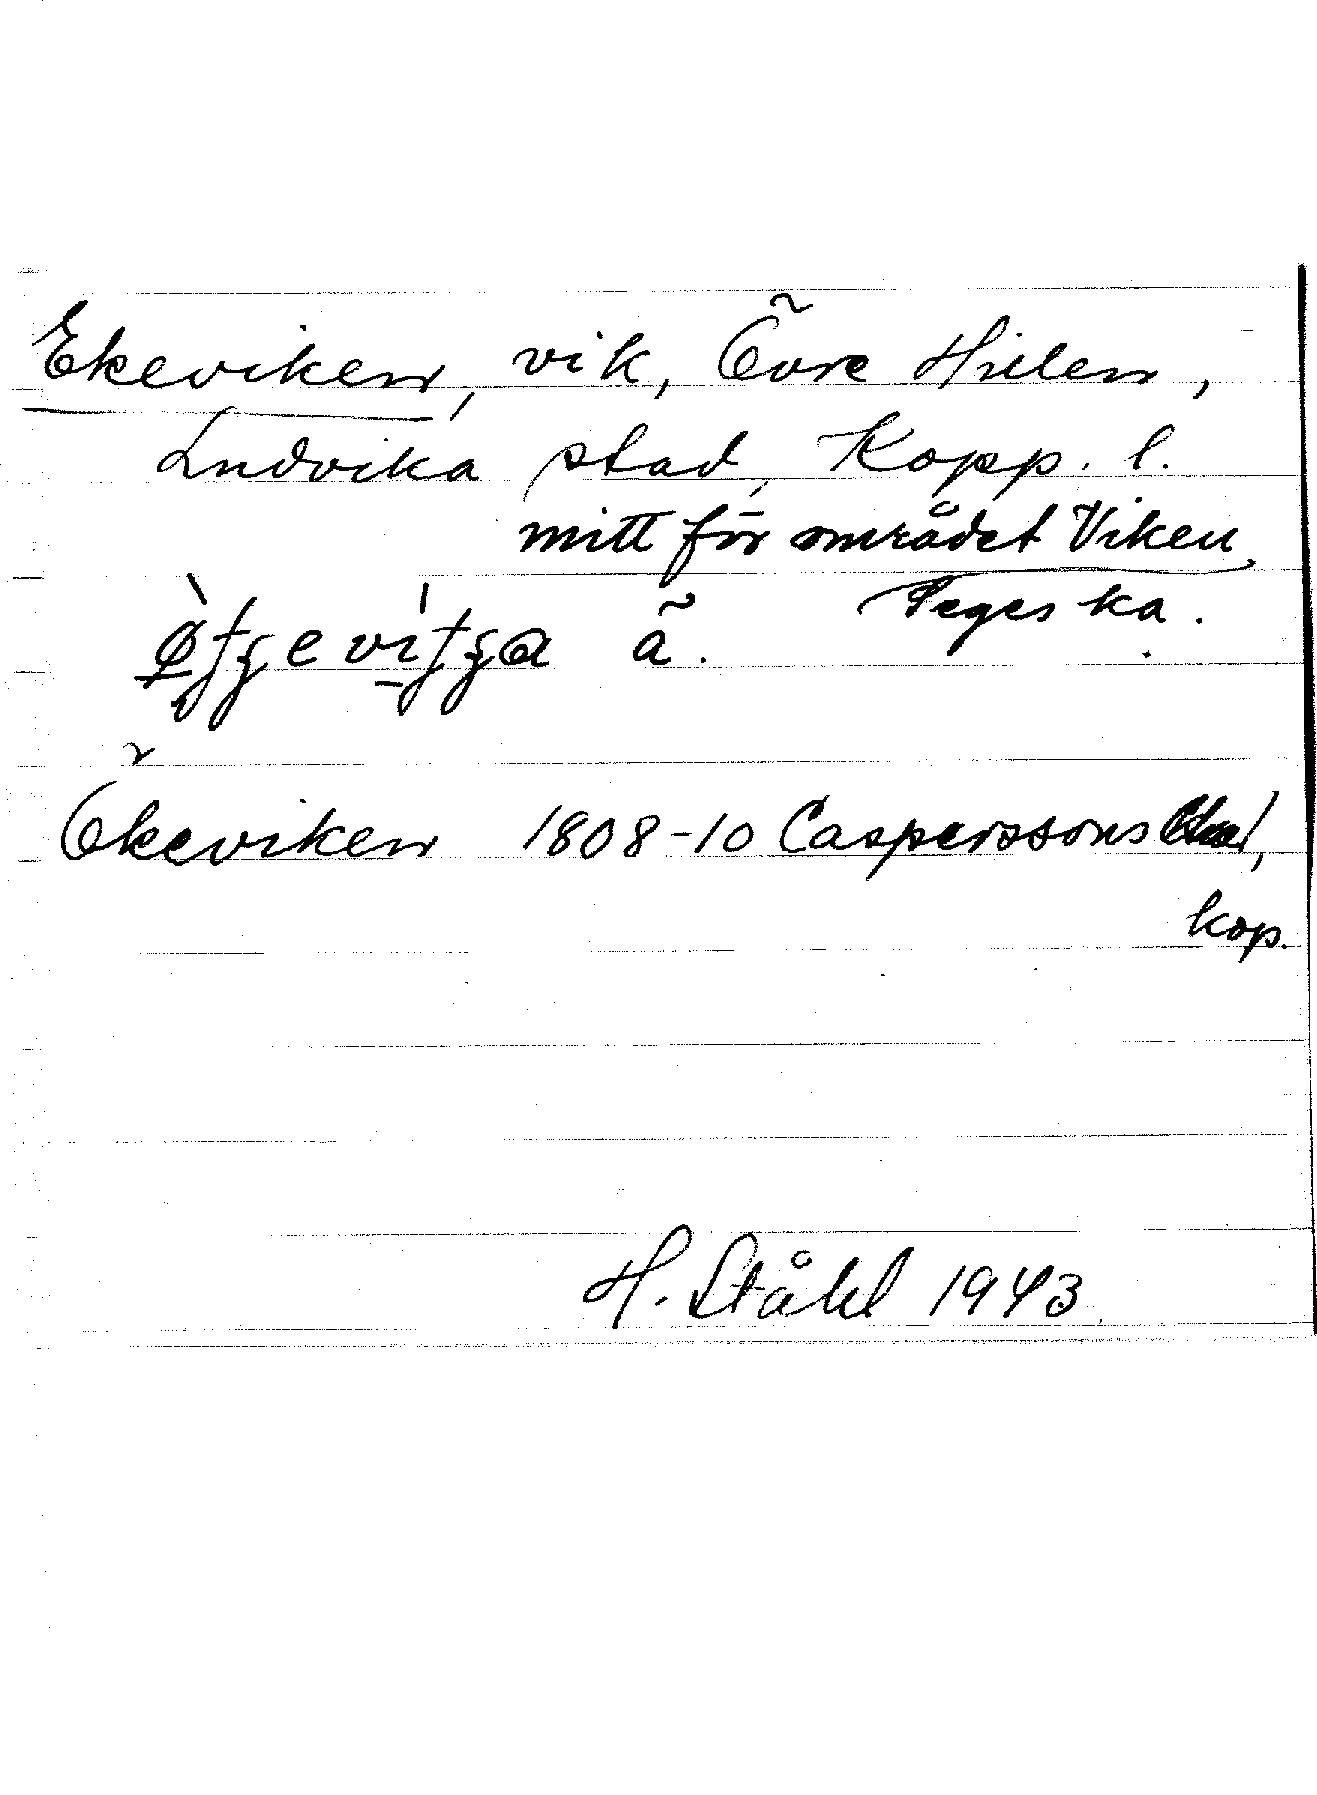 Ekeviken, vik, Övre Hillen,
Ludvika stad, Kopp. l.
mitt för området Viken
Tegeska.
ã.
Ökeviken 1808-10 Casperssons
kop.
H. Ståhl 1943